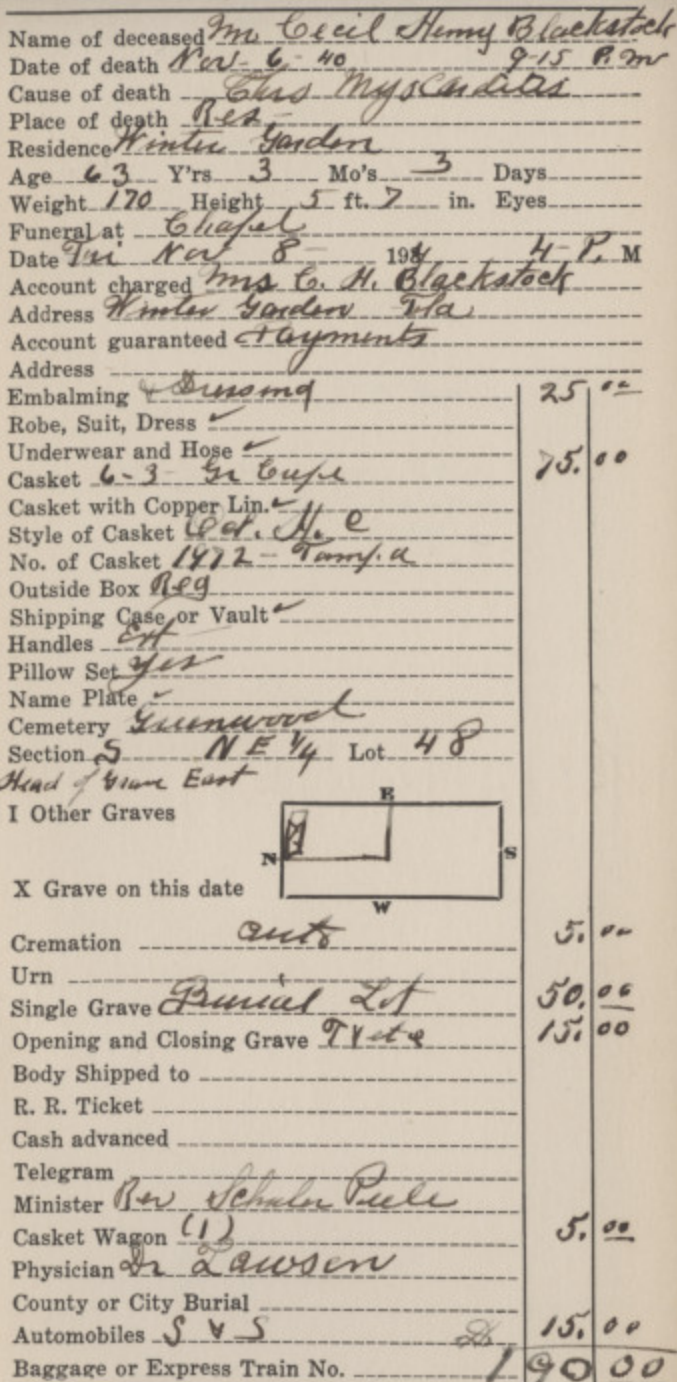 Name of deceased Mr Cecil Henry Blackstock
Date of death Nov- 6- 40 9-15 P.m
Cause of death Chro Myocarditis
Place of death Res-
Residence Winter Garden
Age 63 Y'rs 3 Mo's 3 Days
Weight 170 Height 5 ft. 7 in. Eyes
Funeral at Chapel
Date Fri Nov 8- 194 4- P. M
Account charged Mrs C. H. Blackstock
Address Winter Garden Fla
Account guaranteed Payments
Address
Embalming & Dressing 25 00
Robe, Suit, Dress ✓
Underwear and Hose ✓
Casket 6-3- Gr Crepe 75. 00
Casket with Copper Lin. ✓
Style of Casket Oct. H. C
No. of Casket 1472- Tampa
Outside Box Reg
Shipping Case or Vault ✓
Handles Ext
Pillow Set yes
Name Plate ✓
Cemetery Greenwood
Section S N E 1/4 Lot 48
Head of Grave East
I Other Graves
E
N S
X Grave on this date
W
Cremation auto 5. 00
Urn
Single Grave Burial Lot 50. 00
Opening and Closing Grave 15. 00
Body Shipped to
R. R. Ticket
Cash advanced
Telegram
Minister Rev Schuler Peele
Casket Wagon (1) 5. 00
Physician Dr Lawson
County or City Burial
Automobiles S & S 15. 00
Baggage or Express Train No. 190 00